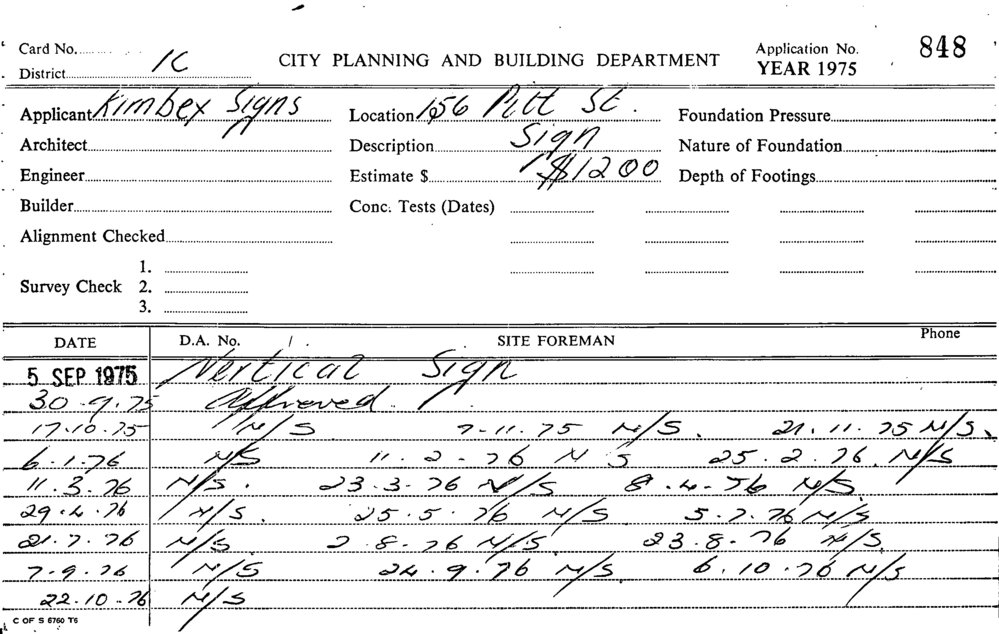 Card No.
Application No. 848
District 1C CITY PLANNING AND BUILDING DEPARTMENT YEAR 1975
Applicant Kimbex Signs Location 156 Pitt St. Foundation Pressure
Architect Description Sign Nature of Foundation
Engineer Estimate $ $1200 Depth of Footings
Builder Conc. Tests (Dates)
Alignment Checked
1.
Survey Check 2.
3.
DATE D.A. No. SITE FOREMAN Phone
5 SEP 1975 Vertical Sign
30.9.75 Approved.
17.10.75 N/S 7.11.75 N/S. 21.11.75 N/S.
6.1.76 N/S 11.2.76 N/S 25.2.76. N/S
11.3.76 N/S. 23.3.76 N/S 8.4.76 N/S.
29.4.76 N/S. 25.5.76 N/S 5.7.76 N/S
21.7.76 N/S. 2.8.76 N/S. 23.8.76 N/S.
7.9.76 N/S 24.9.76 N/S. 6.10.76 N/S
22.10.76 N/S
C OF S 6760 T6